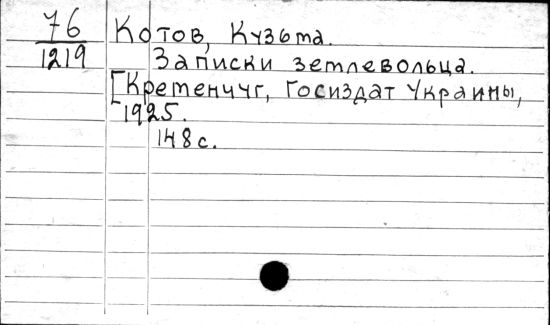 76
1219
Котов, Кузьма.
Записки землевольца.
[Кременчуг, Госиздат Украины,
1925.
148 с.